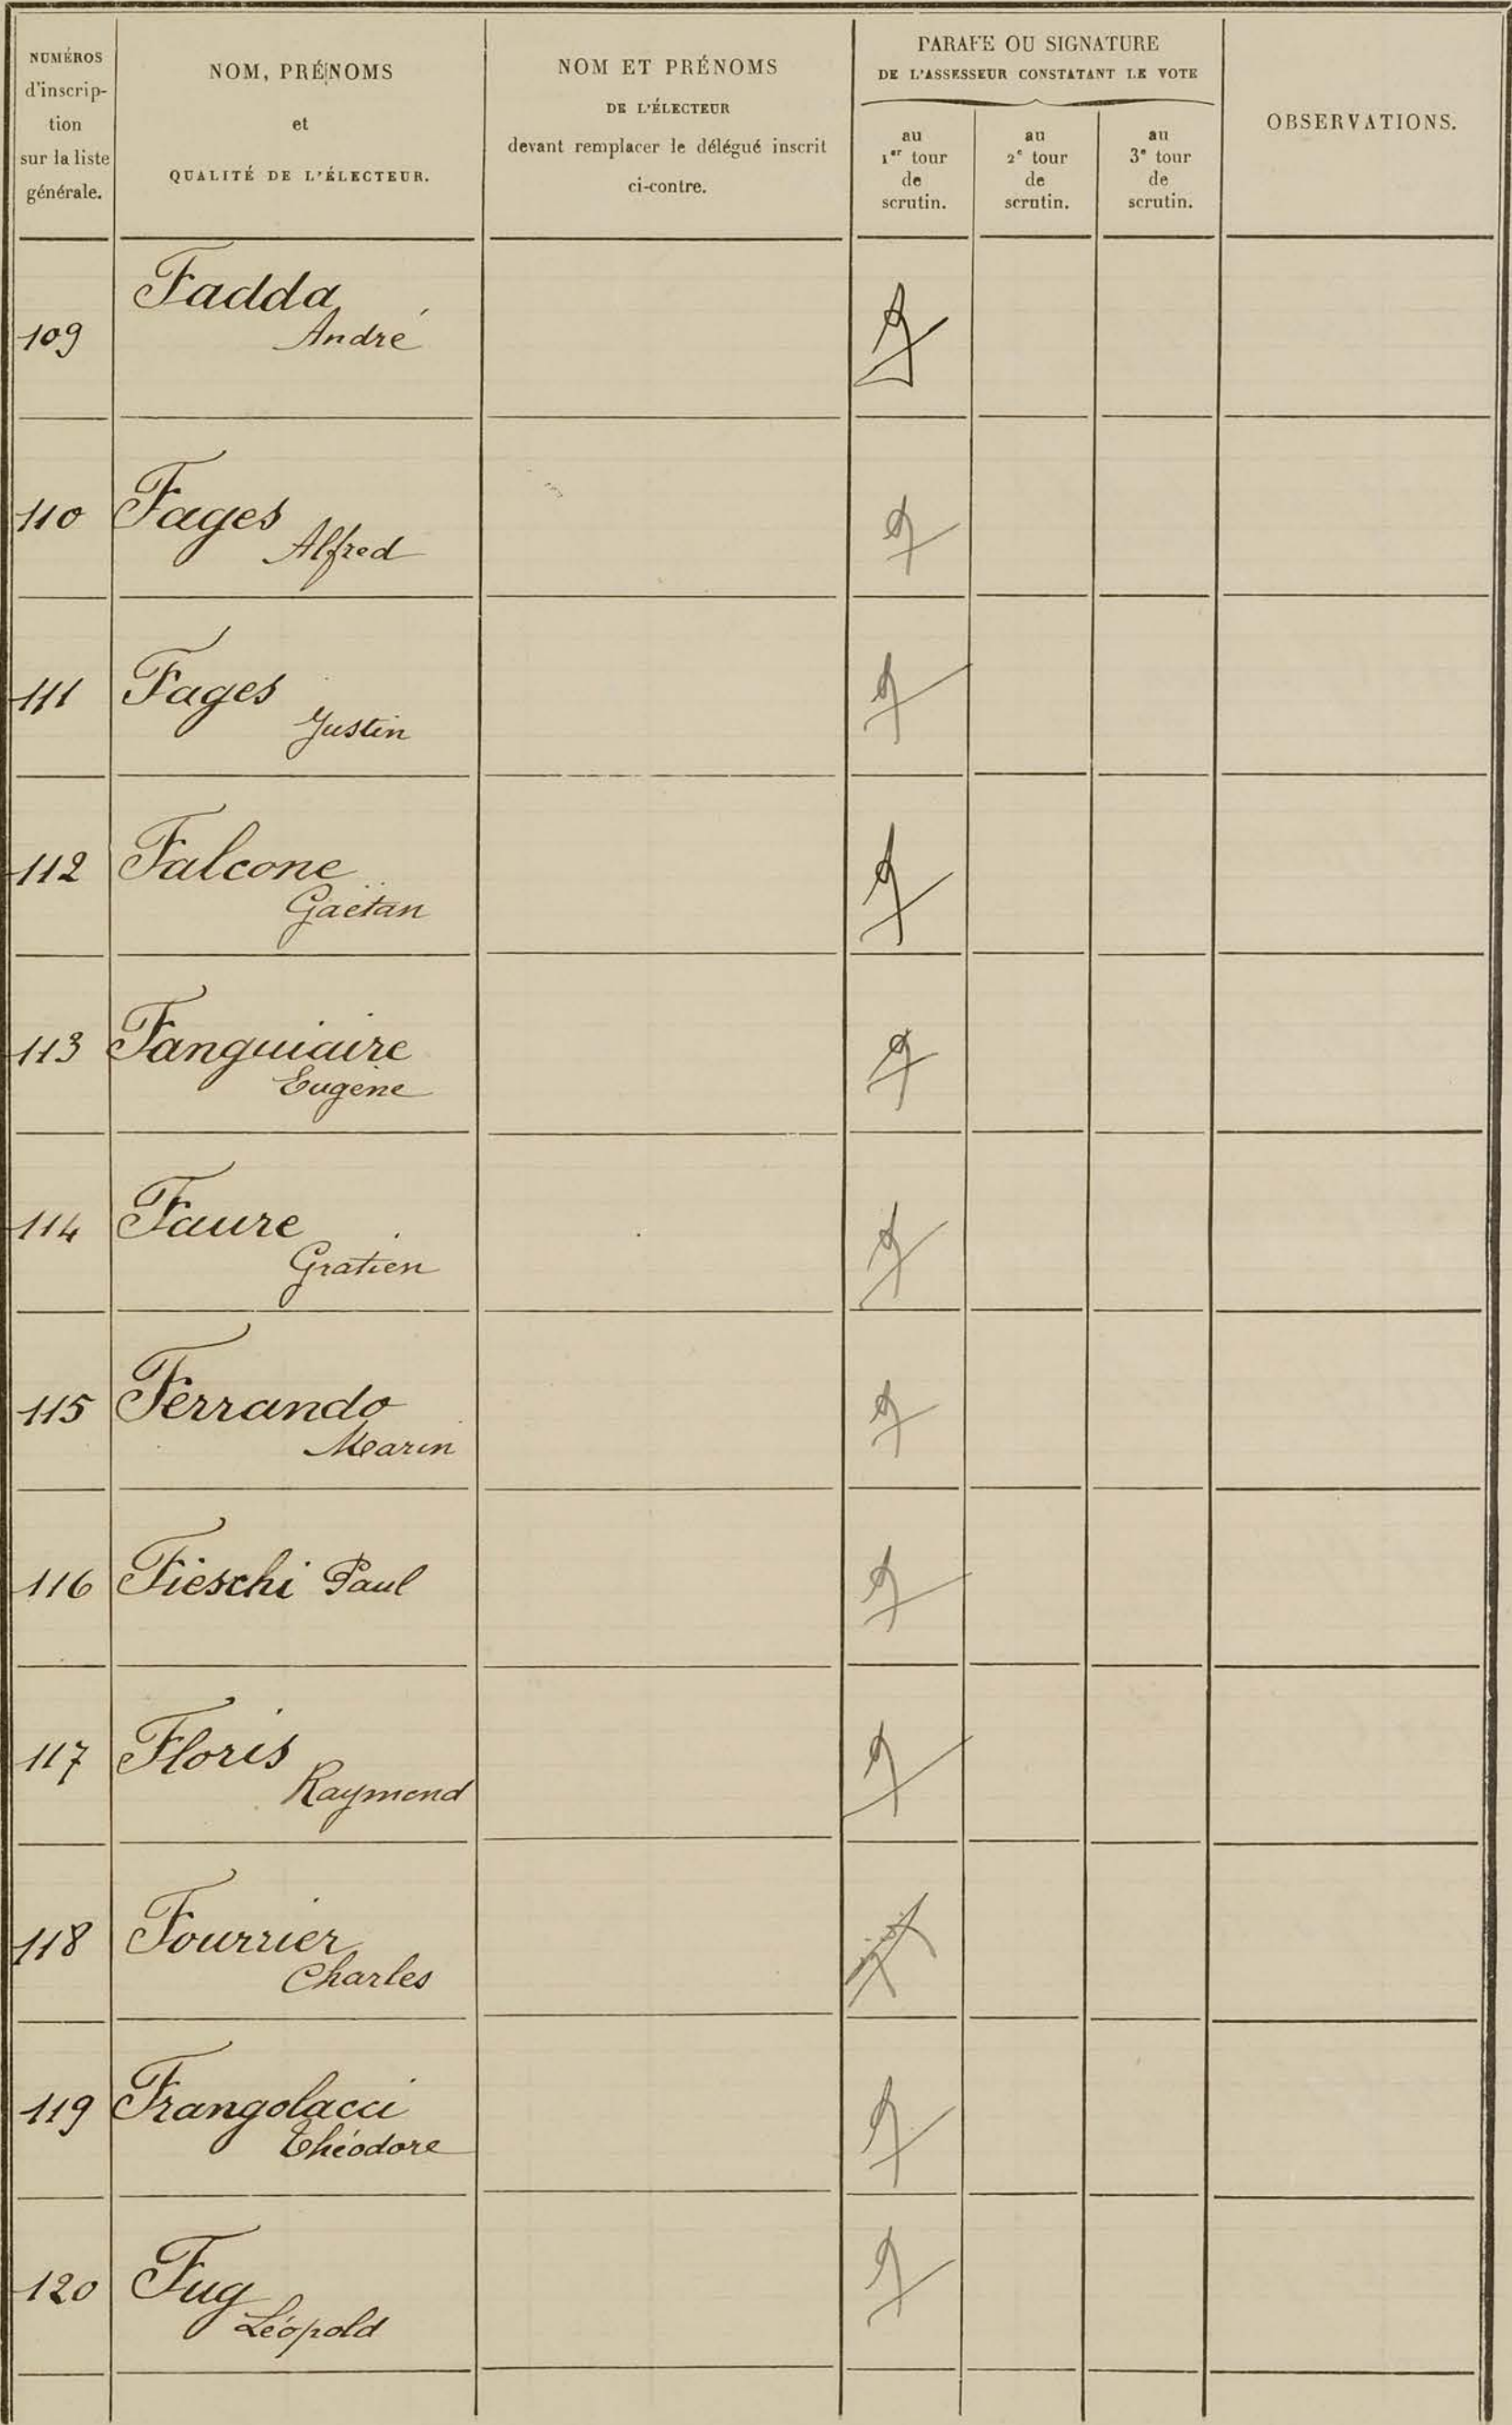 NUMÉROS
d'inscrip-
tion
sur la liste
générale.
NOM, PRÉNOMS
et
QUALITÉ DE L'ÉLECTEUR.
NOM ET PRÉNOMS
DE L'ÉLECTEUR
devant remplacer le délégué inscrit
ci-contre.
PARAFE OU SIGNATURE
DE L'ASSESSEUR CONSTATANT LE VOTE
au
1er tour
de
scrutin.
au
2e tour
de
scrutin.
au
3e tour
de
scrutin.
OBSERVATIONS.
109 Fadda
André
110 Fages
Alfred
111 Fages
Justin
112 Falcone
Gaëtan
113 Fanguiaire
Eugène
114 Faure
Gratien
115 Ferrando
Marin
116 Fieschi Paul
117 Floris
Raymond
118 Fourrier
Charles
119 Frangolacci
Théodore
120 Fug
Léopold